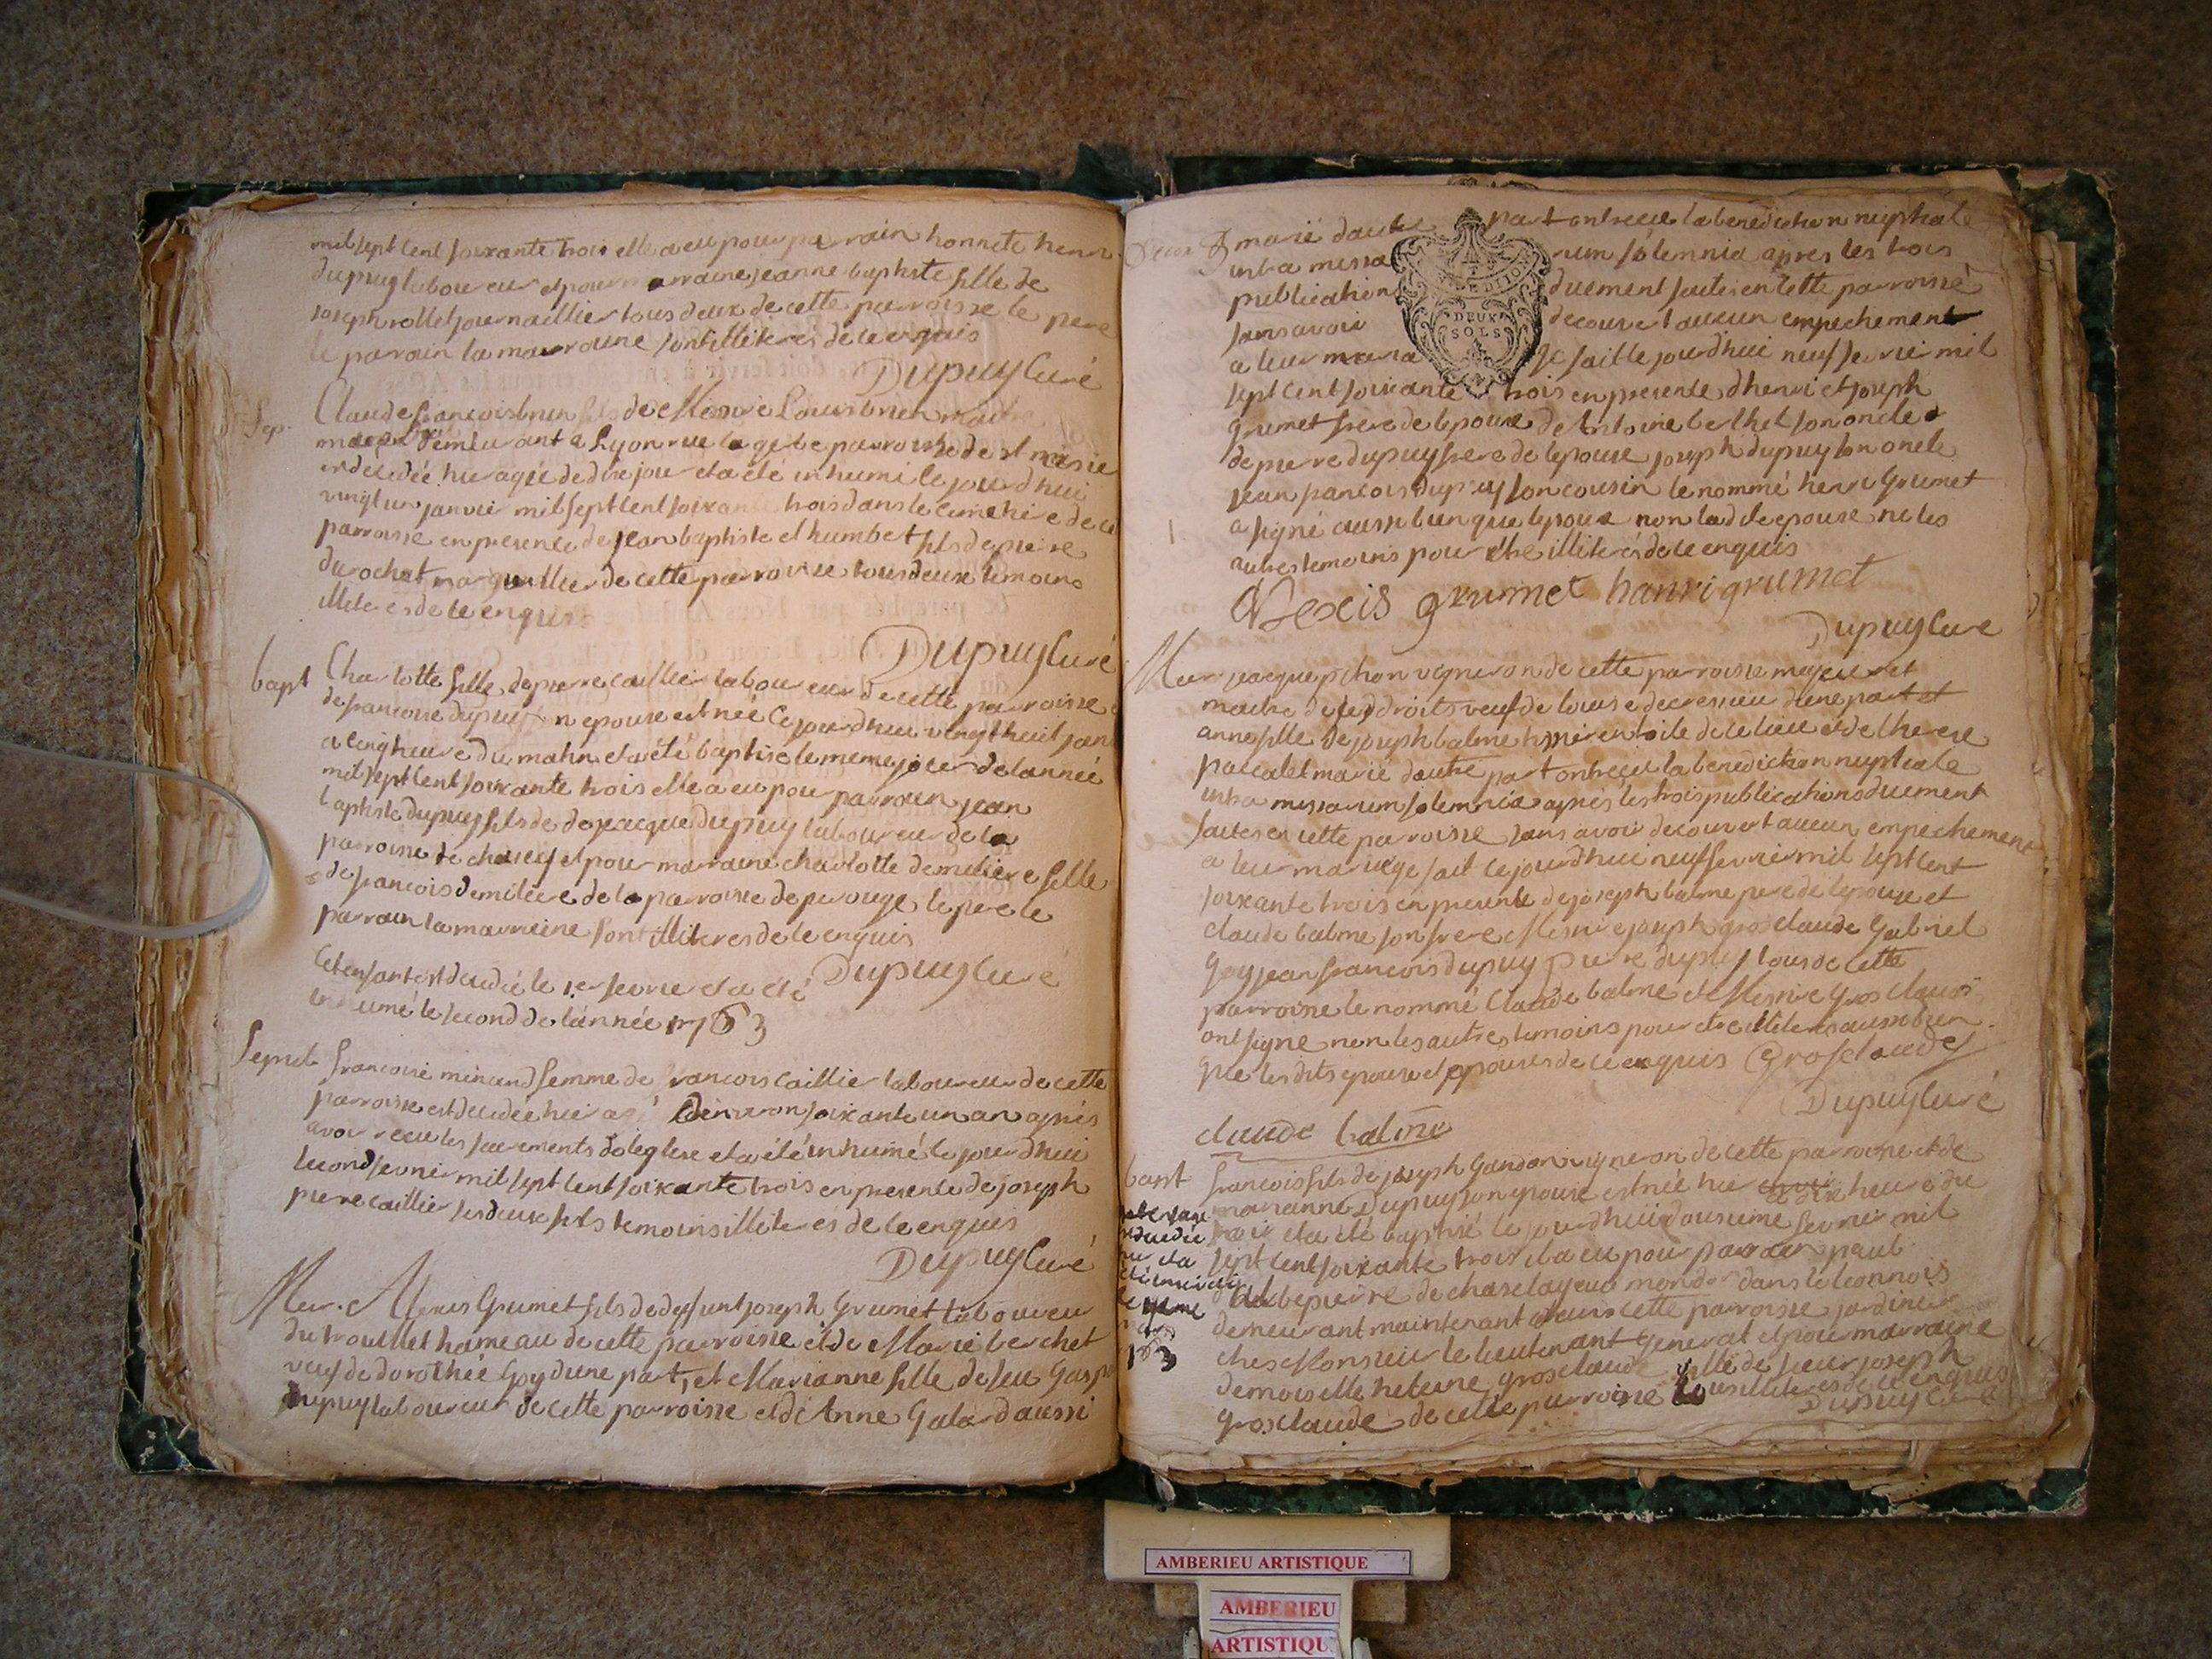 mil sept cent soixante trois elle a eu pour parrain honnete henri
dupuy laboureur et pour marraine jeanne baptiste fille de
joseph rollet journaillier tous deux de cette parroisse le pere
le parrain la marraine sont illiterés de ce enquis
Dupuy Curé
Sep.
Claude francois brun fils de Messire Louis brun maitre
demeurant a Lyon rue parroisse de st
est decedée hier agée de dix jour et a été inhumé ce jourd'hui
vingt un janvier mil sept cent soixante trois dans le cimetiere de ce
parroisse en presence de jean baptiste et humbert fils de pierre
durochat marguillier de cette parroisse tous deux temoins
illiterés de ce enquis
Dupuy Curé
bapt
Charlotte fille de pierre caillier laboureur de cette parroisse
de francoise dupuy son epouse est née ce jourd'hui vingt huit jan
a cinq heure du matin et a été baptisé le meme jour de lannée
mil sept cent soixante trois elle a eu pour parrain jean
baptiste dupuy fils de jacque dupuy laboureur de la
parroisse de et pour marraine charlotte demiliere fille
de francois demiliere de la parroisse de perouge le pere le
parrain la marraine sont illiteres de ce enquis
Dupuy Curé
Cet enfant est decedé le 1er fevrie et a été
inhumé le second de lannée 1763
Sepult
francoise minand femme de francois caillier laboureur de cette
parroisse est decedée hier agé denviron soixante un an apres
avoir receu les sacrements de leglise et a été inhumé ce jourd'hui
second fevrier mil sept cent soixante trois en presence de joseph
pierre caillier ses deux fils temoins illiterés de ce enquis
Dupuy Curé
Mar. Alexis Grumet fils de deffunt joseph Grumet laboureur
du trouillet hameau de cette parroisse et de Marie berthet
veuf de dorothée Goy dune part, et Marianne fille de feu Gaspa
dupuy laboureur de cette parroisse et de Anne Galard aussi
marié dautre part ont receu la benediction nuptiale
intra missarum solemnia apres les trois
publications duement faites en cette parroisse
sans avoir decouvert aucun empechement
a leur mariage fait ce jourd'hui neuf fevrier mil
sept cent soixante trois en presence dhenri et joseph
grumet frere de lepoux de Antoine berthet son oncle
de pierre dupuy frere de lepouse joseph dupuy son oncle
jean francois dupuy son cousin le nommé henri Grumet
a signé aussi bien que lepoux non ladite epouse ne les
autres temoins pour etre illiterés de ce enquis
DEUX
SOLS
Alexis grumet hanri grumet
Dupuy Curé
Mar. jacque pichon vigneron de cette parroisse majeur et
maitre de ses droits veuf de louise decresieu dune part et
anne fille de joseph balme de ce lieu et de therese
pascalet marié dautre part ont receu la benediction nuptiale
intra missarum solemnia apres les trois publications duement
faites en cette parroisse sans avoir decouvert aucun empechement
a leur mariage fait ce jourd'hui neuf fevrier mil sept cent
soixante trois en presence de joseph balme pere de lepouse et
claude balme son frere Messire joseph gros claude Gabriel
Goy jean francois dupuy pierre dupuy tous de cette
parroisse le nommé Claude balme et Messire Gros claude
ont signe non les autres temoins pour etre illiterés aussi bien
que les dits epoux et epouses de ce enquis Grosclaude
Dupuy Curé
claude balme
bapt
francois fils de joseph Gandon vigneron de cette parroisse et de
marianne Dupuy son epouse est née hier a six heure du
soir et a été baptisé ce jourd'hui douzieme fevrier mil
sept cent soixante trois il a eu pour parrain paul
de pierre de dans le leonnois
demeurant maintenant dans cette parroisse jardinier
ches Monsieur le lieutenant General et pour marraine
demoiselle heleine grosclaude fille de sieur joseph
grosclaude de cette parroisse tous illiterés de ce enquis
Dupuy Curé
AMBERIEU ARTISTIQUE
AMBERIEU
ARTISTIQU